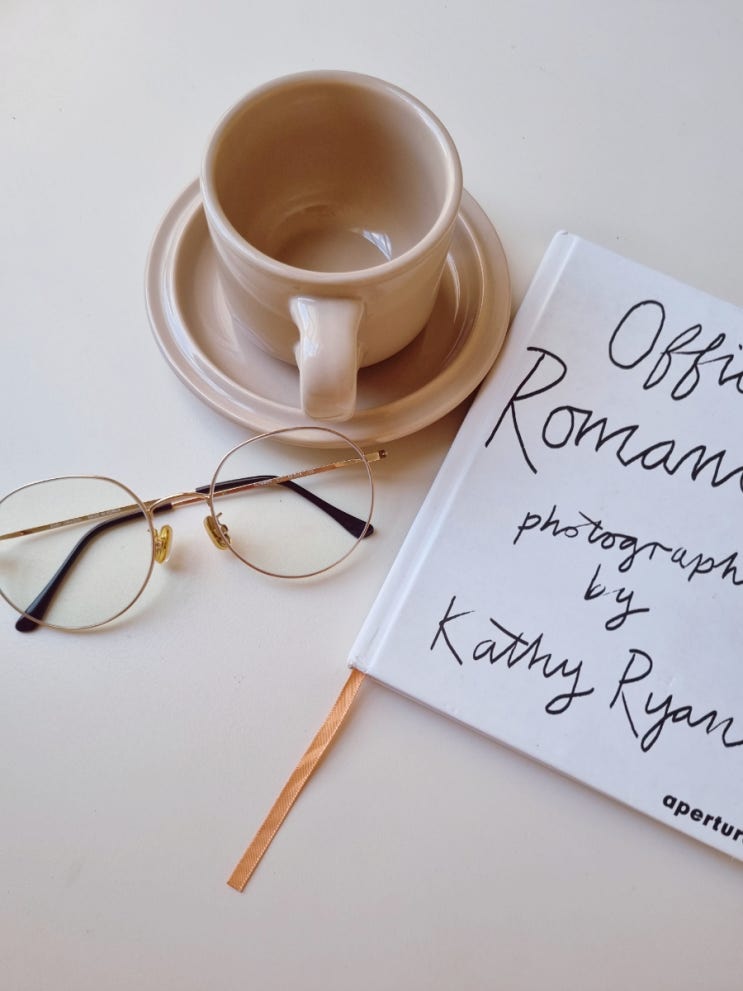 Offic
Romanc
photograph
by
Kathy Ryan
aperture